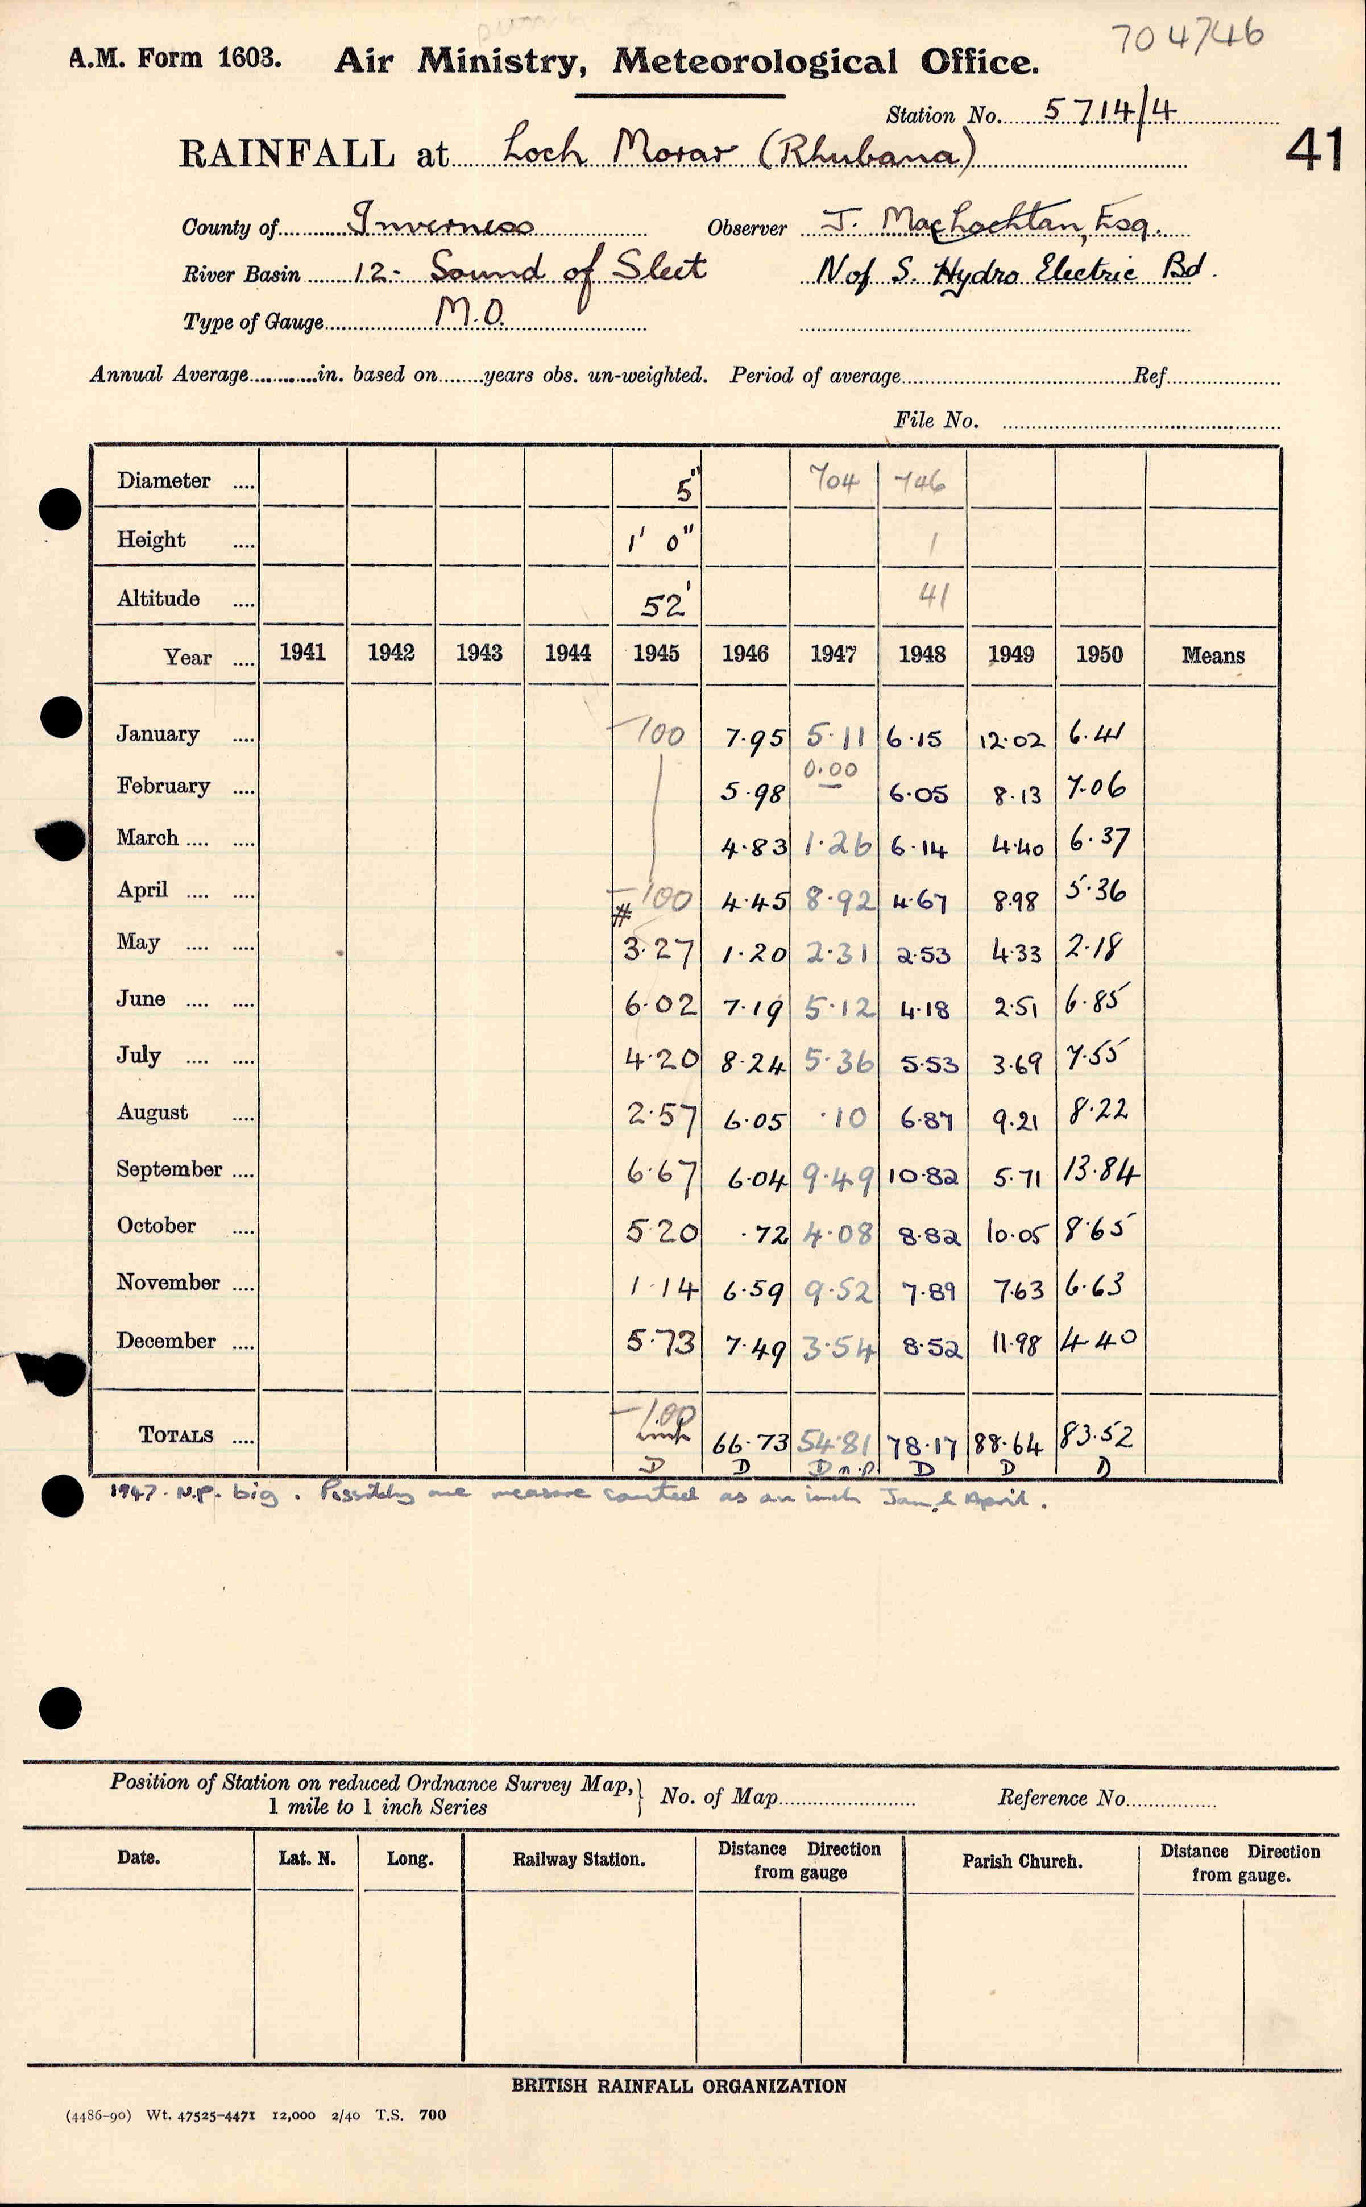 704746
A.M. Form 1603. Air Ministry, Meteorological Office.
Station No. 5714/4
RAINFALL at Loch Morar (Rhubana) 41
County of Inverness Observer J. MacLachlan, Esq.
River Basin 12- Sound of Sleet N of S. Hydro Electric Bd.
Type of Gauge M.O.
Annual Average in. based on years obs. un-weighted. Period of average Ref.
File No.
Diameter 5" 704 746
Height 1' 0" 1
Altitude 52' 41
Year 1941 1942 1943 1944 1945 1946 1947 1948 1949 1950 Means
January -100 7.95 5.11 6.15 12.02 6.41
February 5.98 0.00 — 6.05 8.13 7.06
March 4.83 1.26 6.14 4.40 6.37
April -100 4.45 8.92 4.67 8.98 5.36
May # 3.27 1.20 2.31 2.53 4.33 2.18
June 6.02 7.19 5.12 4.18 2.51 6.85
July 4.20 8.24 5.36 5.53 3.69 7.55
August 2.57 6.05 .10 6.87 9.21 8.22
September 6.67 6.04 9.49 10.82 5.71 13.84
October 5.20 .72 4.08 8.82 10.05 8.65
November 1.14 6.59 9.52 7.89 7.63 6.63
December 5.73 7.49 3.54 8.52 11.98 4.40
TOTALS -100 66.73 54.81 78.17 88.64 83.52
D D D n.p. D D D
1947. N.P. big. Possibly one measure counted as an inch Jan & April.
Position of Station on reduced Ordnance Survey Map, 1 mile to 1 inch Series } No. of Map Reference No.
Date. Lat. N. Long. Railway Station. Distance Direction from gauge Parish Church. Distance Direction from gauge.
BRITISH RAINFALL ORGANIZATION
(4486-90) Wt. 47525-4471 12,000 2/40 T.S. 700